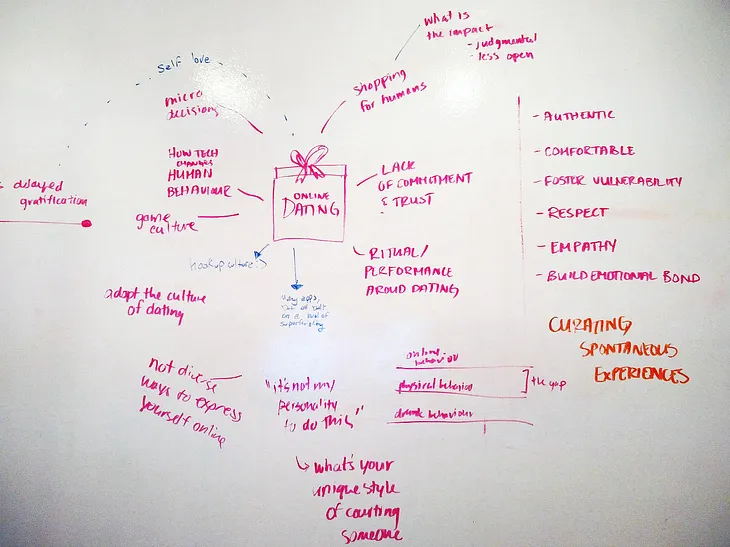 what is
the impact
- judgmental
- less open
self love
shopping
for humans
micro
decisions
- AUTHENTIC
- COMFORTABLE
- FOSTER VULNERABILITY
- RESPECT
- EMPATHY
- BUILD EMOTIONAL BOND
HOW TECH
CHANGES
HUMAN
BEHAVIOUR
LACK
OF COMMITMENT
& TRUST
ONLINE
DATING
delayed
gratification
game
culture
hookup culture
RITUAL/
PERFORMANCE
AROUD DATING
many apps,
on a level of
adapt the culture
of dating
CURATING
SPONTANEOUS
EXPERIENCES
not diverse
ways to express
yourself online
"it's not my
personality
to do this"
online
behavior
physical behavior
the gap
drunk behaviour
what's your
unique style
of courting
someone